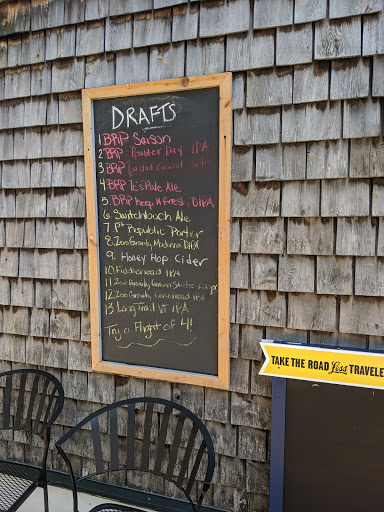 DRAFTS
1 BRP Saison
2 BRP Powder Day IPA
3 BRP Toasted
4 BRP 7C's Pale Ale
5. BRP Keep It Fresh DIPA
6 Switchback Ale
7. Republic Porter
8. Zero Gravity Madonna DIPA
9. Honey Hop Cider
10 Fiddlehead IPA
11 Zero Gravity Green State Lager
12 Zero Gravity Conehead IPA
13 Long Trail VT IPA
Try a Flight of 4!
TAKE THE ROAD Less TRAVELE